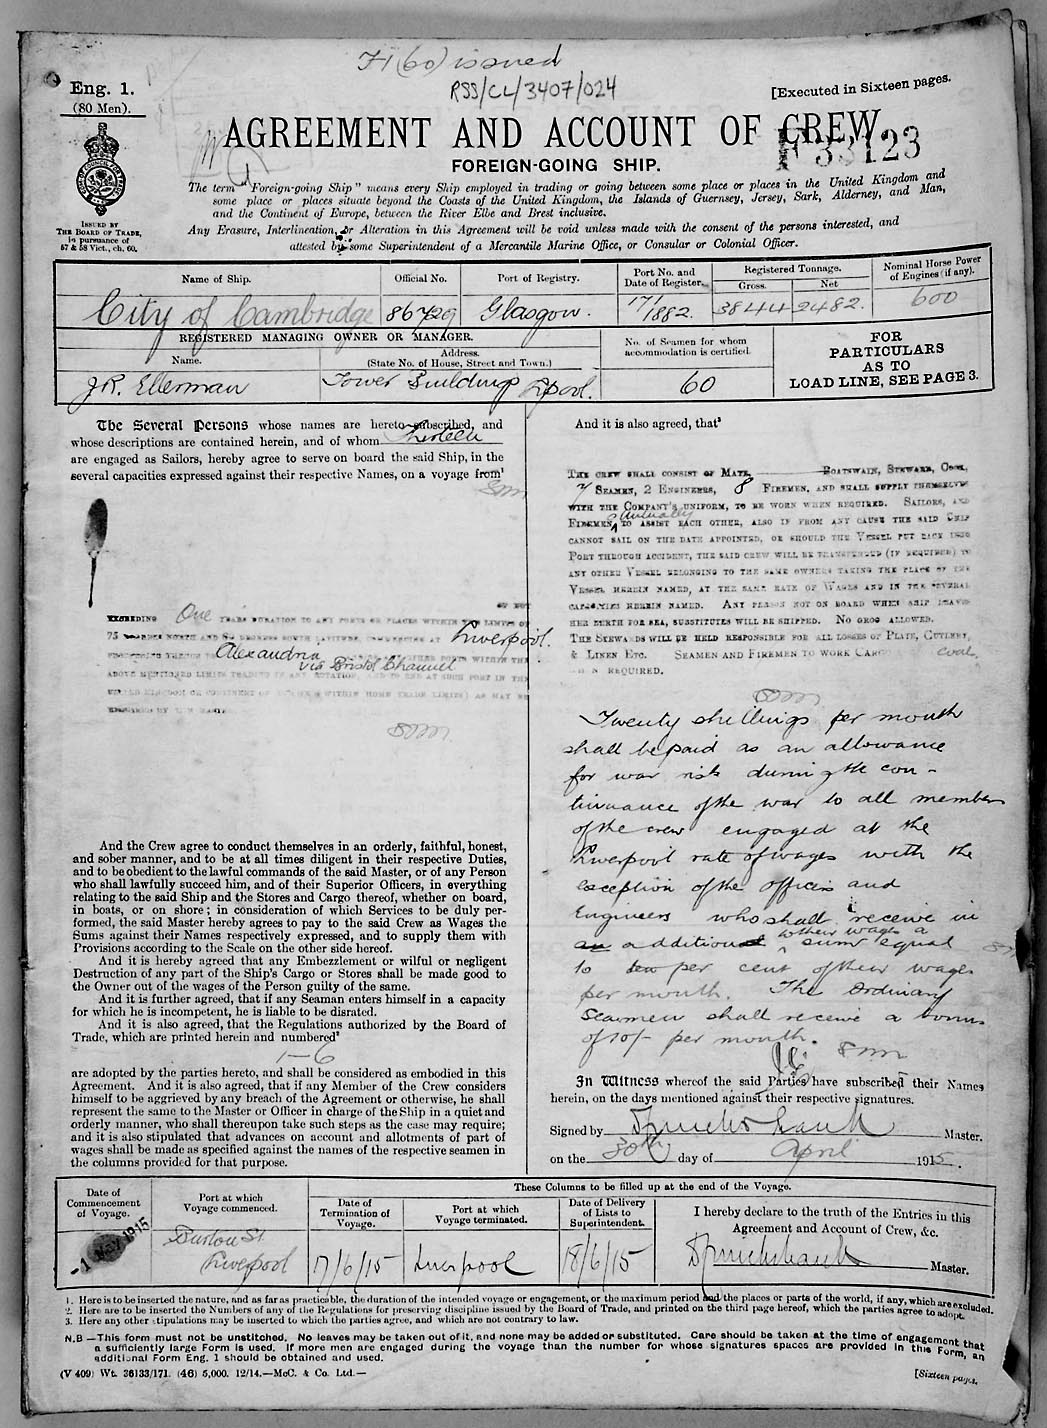 F1 (60) issued
RSS/CL/3407/024
Eng. 1.
(80 Men).
[Executed in Sixteen pages.
AGREEMENT AND ACCOUNT OF CREW.
F 33123
FOREIGN-GOING SHIP.
ISSUED BY
THE BOARD OF TRADE,
in pursuance of
57 & 58 Vict., ch. 60.
The term "Foreign-going Ship" means every Ship employed in trading or going between some place or places in the United Kingdom and
some place or places situate beyond the Coasts of the United Kingdom, the Islands of Guernsey, Jersey, Sark, Alderney, and Man,
and the Continent of Europe, between the River Elbe and Brest inclusive.
Any Erasure, Interlineation, or Alteration in this Agreement will be void unless made with the consent of the persons interested, and
attested by some Superintendent of a Mercantile Marine Office, or Consular or Colonial Officer.
Name of Ship. Official No. Port of Registry. Port No. and Date of Register. Registered Tonnage. Gross. Net Nominal Horse Power of Engines (if any).
City of Cambridge 86729 Glasgow. 171/1882. 3844 2482. 600
REGISTERED MANAGING OWNER OR MANAGER.
Name. Address.
(State No. of House, Street and Town.)
No. of Seamen for whom
accommodation is certified.
FOR
PARTICULARS
AS TO
LOAD LINE, SEE PAGE 3.
J.R. Ellerman Tower Buildings Lpool. 60
The Several Persons whose names are hereto subscribed, and
whose descriptions are contained herein, and of whom Thirteen
are engaged as Sailors, hereby agree to serve on board the said Ship, in the
several capacities expressed against their respective Names, on a voyage from¹
OF NOT
EXCEEDING One YEARS DURATION TO ANY PORTS OR PLACES WITHIN THE LIMITS OF
75 DEGREES NORTH AND 60 DEGREES SOUTH LATITUDE, COMMENCING AT Liverpool.
Alexandria OTHER PORTS WITHIN THE
via Bristol Channel
ABOVE MENTIONED LIMITS TRADING IN ANY ROTATION, AND TO END AT SUCH PORT IN THE
UNITED KINGDOM OR CONTINENT OF EUROPE (WITHIN HOME TRADE LIMITS) AS MAY BE
REQUIRED BY THE MASTER
And the Crew agree to conduct themselves in an orderly, faithful, honest,
and sober manner, and to be at all times diligent in their respective Duties,
and to be obedient to the lawful commands of the said Master, or of any Person
who shall lawfully succeed him, and of their Superior Officers, in everything
relating to the said Ship and the Stores and Cargo thereof, whether on board,
in boats, or on shore; in consideration of which Services to be duly per-
formed, the said Master hereby agrees to pay to the said Crew as Wages the
Sums against their Names respectively expressed, and to supply them with
Provisions according to the Scale on the other side hereof.
And it is hereby agreed that any Embezzlement or wilful or negligent
Destruction of any part of the Ship's Cargo or Stores shall be made good to
the Owner out of the wages of the Person guilty of the same.
And it is further agreed, that if any Seaman enters himself in a capacity
for which he is incompetent, he is liable to be disrated.
And it is also agreed, that the Regulations authorized by the Board of
Trade, which are printed herein and numbered²
1–6
are adopted by the parties hereto, and shall be considered as embodied in this
Agreement. And it is also agreed, that if any Member of the Crew considers
himself to be aggrieved by any breach of the Agreement or otherwise, he shall
represent the same to the Master or Officer in charge of the Ship in a quiet and
orderly manner, who shall thereupon take such steps as the case may require;
and it is also stipulated that advances on account and allotments of part of
wages shall be made as specified against the names of the respective seamen in
the columns provided for that purpose.
And it is also agreed, that³
THE CREW SHALL CONSIST OF MATE, BOATSWAIN, STEWARD, COOK,
7 SEAMEN, 2 ENGINEERS, 8 FIREMEN, AND SHALL SUPPLY THEMSELVES
WITH THE COMPANY'S UNIFORM, TO BE WORN WHEN REQUIRED. SAILORS, AND
mutually
FIREMEN, TO ASSIST EACH OTHER, ALSO IF FROM ANY CAUSE THE SAID SHIP
CANNOT SAIL ON THE DATE APPOINTED, OR SHOULD THE VESSEL PUT BACK INTO
PORT THROUGH ACCIDENT, THE SAID CREW WILL BE TRANSFERRED (IF REQUIRED) TO
ANY OTHER VESSEL BELONGING TO THE SAME OWNERS TAKING THE PLACE OF THE
VESSEL HEREIN NAMED, AT THE SAME RATE OF WAGES AND IN THE SEVERAL
CAPACITIES HEREIN NAMED. ANY PERSON NOT ON BOARD WHEN SHIP LEAVES
HER BERTH FOR SEA, SUBSTITUTES WILL BE SHIPPED. NO GROG ALLOWED.
THE STEWARDS WILL BE HELD RESPONSIBLE FOR ALL LOSSES OF PLATE, CUTLERY,
& LINEN ETC. SEAMEN AND FIREMEN TO WORK CARGO coal
WHEN REQUIRED.
Twenty shillings per month
shall be paid as an allowance
for war risk during the con-
tinuance of the war to all members
of the crew engaged at the
Liverpool rate of wages with the
exception of the officers and
Engineers who shall receive in
to their wages a
an addition sum equal
to ten per cent of their wages
per month. The Ordinary
Seamen shall receive a bonus
of 10/- per month.
In Witness whereof the said Parties have subscribed their Names
herein, on the days mentioned against their respective signatures.
Signed by Master.
on the 30th day of April 1915.
These Columns to be filled up at the end of the Voyage.
Date of Commencement of Voyage. Port at which Voyage commenced. Date of Termination of Voyage. Port at which Voyage terminated. Date of Delivery of Lists to Superintendent. I hereby declare to the truth of the Entries in this Agreement and Account of Crew, &c.
-1 MAY 1915 Liverpool 17/6/15 Liverpool 18/6/15 Master.
1. Here is to be inserted the nature, and as far as practicable, the duration of the intended voyage or engagement, or the maximum period and the places or parts of the world, if any, which are excluded.
2. Here are to be inserted the Numbers of any of the Regulations for preserving discipline issued by the Board of Trade, and printed on the third page hereof, which the parties agree to adopt.
3. Here any other stipulations may be inserted to which the parties agree, and which are not contrary to law.
N.B—This form must not be unstitched. No leaves may be taken out of it, and none may be added or substituted. Care should be taken at the time of engagement that
a sufficiently large Form is used. If more men are engaged during the voyage than the number for whose signatures spaces are provided in this Form, an
additional Form Eng. 1 should be obtained and used.
(V 409) Wt. 36133/171. (46) 5,000. 12/14.—McC. & Co. Ltd.—
[Sixteen pages.